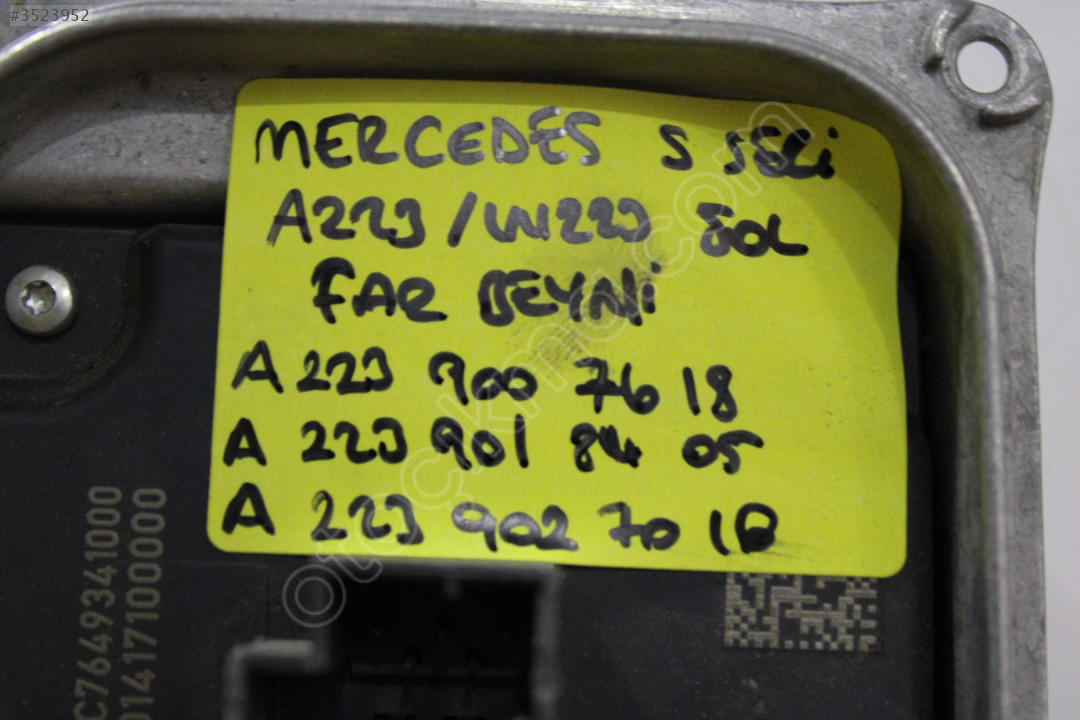 #3523952
MERCEDES S SERi
A223/W223 SOL
FAR BEYNi
A 223 900 76 18
A 223 901 84 05
A 223 902 70 18
C7649341000
01417100000
otocikma.com